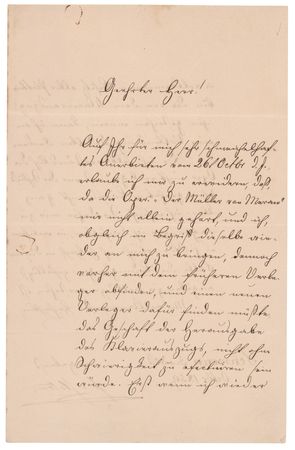 Geehrter Herr!
Auf Ihr für mich sehr schmeichelhaf-
tes Anerbieten vom 26/ Octbr d. J.
erlaube ich mir zu erwiedern, daß,
da die Oper: Der Müller von Meran"
mir nicht allein gehört, und ich,
obgleich im Begriff dieselbe wie-
der an mich zu bringen, dennoch
vorher mit dem früheren Verle-
ger abfinden, und einen neuen
Verleger dafür finden müßte
das Geschäft der Herausgabe
des Klavierauszugs, nicht ohne
Schwierigkeit zu effectuiren sein
würde. Erst wenn ich wieder